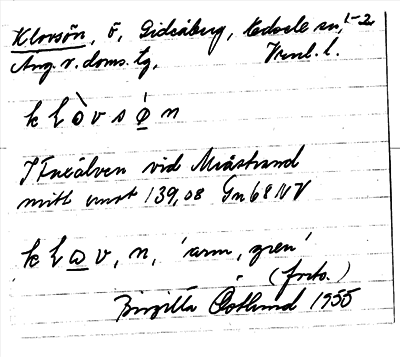 Klovsön, ö, Gideåberg, Edsele sn, 1-2
Ång. v. doms. tg, Vnl. l.
k l ò v s ó n
I Faxälven vid Miåstrand
mitt emot 139,08 Gn 68 NV
k l ω v, n, 'arm, gren'
(forts.)
Birgitta Östlund 1955